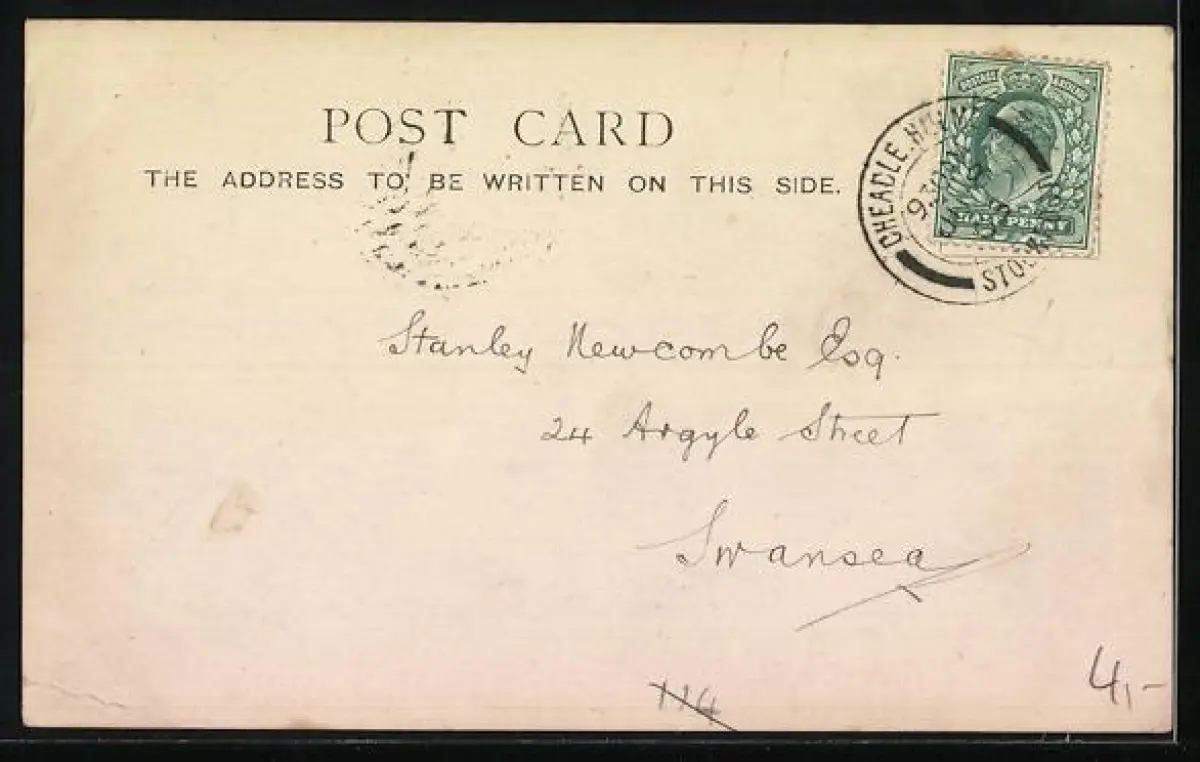 POST CARD
THE ADDRESS TO BE WRITTEN ON THIS SIDE.
CHEADLE.HULME
HALF PENNY
Stanley Newcombe Esq.
24 Argyle Street
Swansea
114
4,-